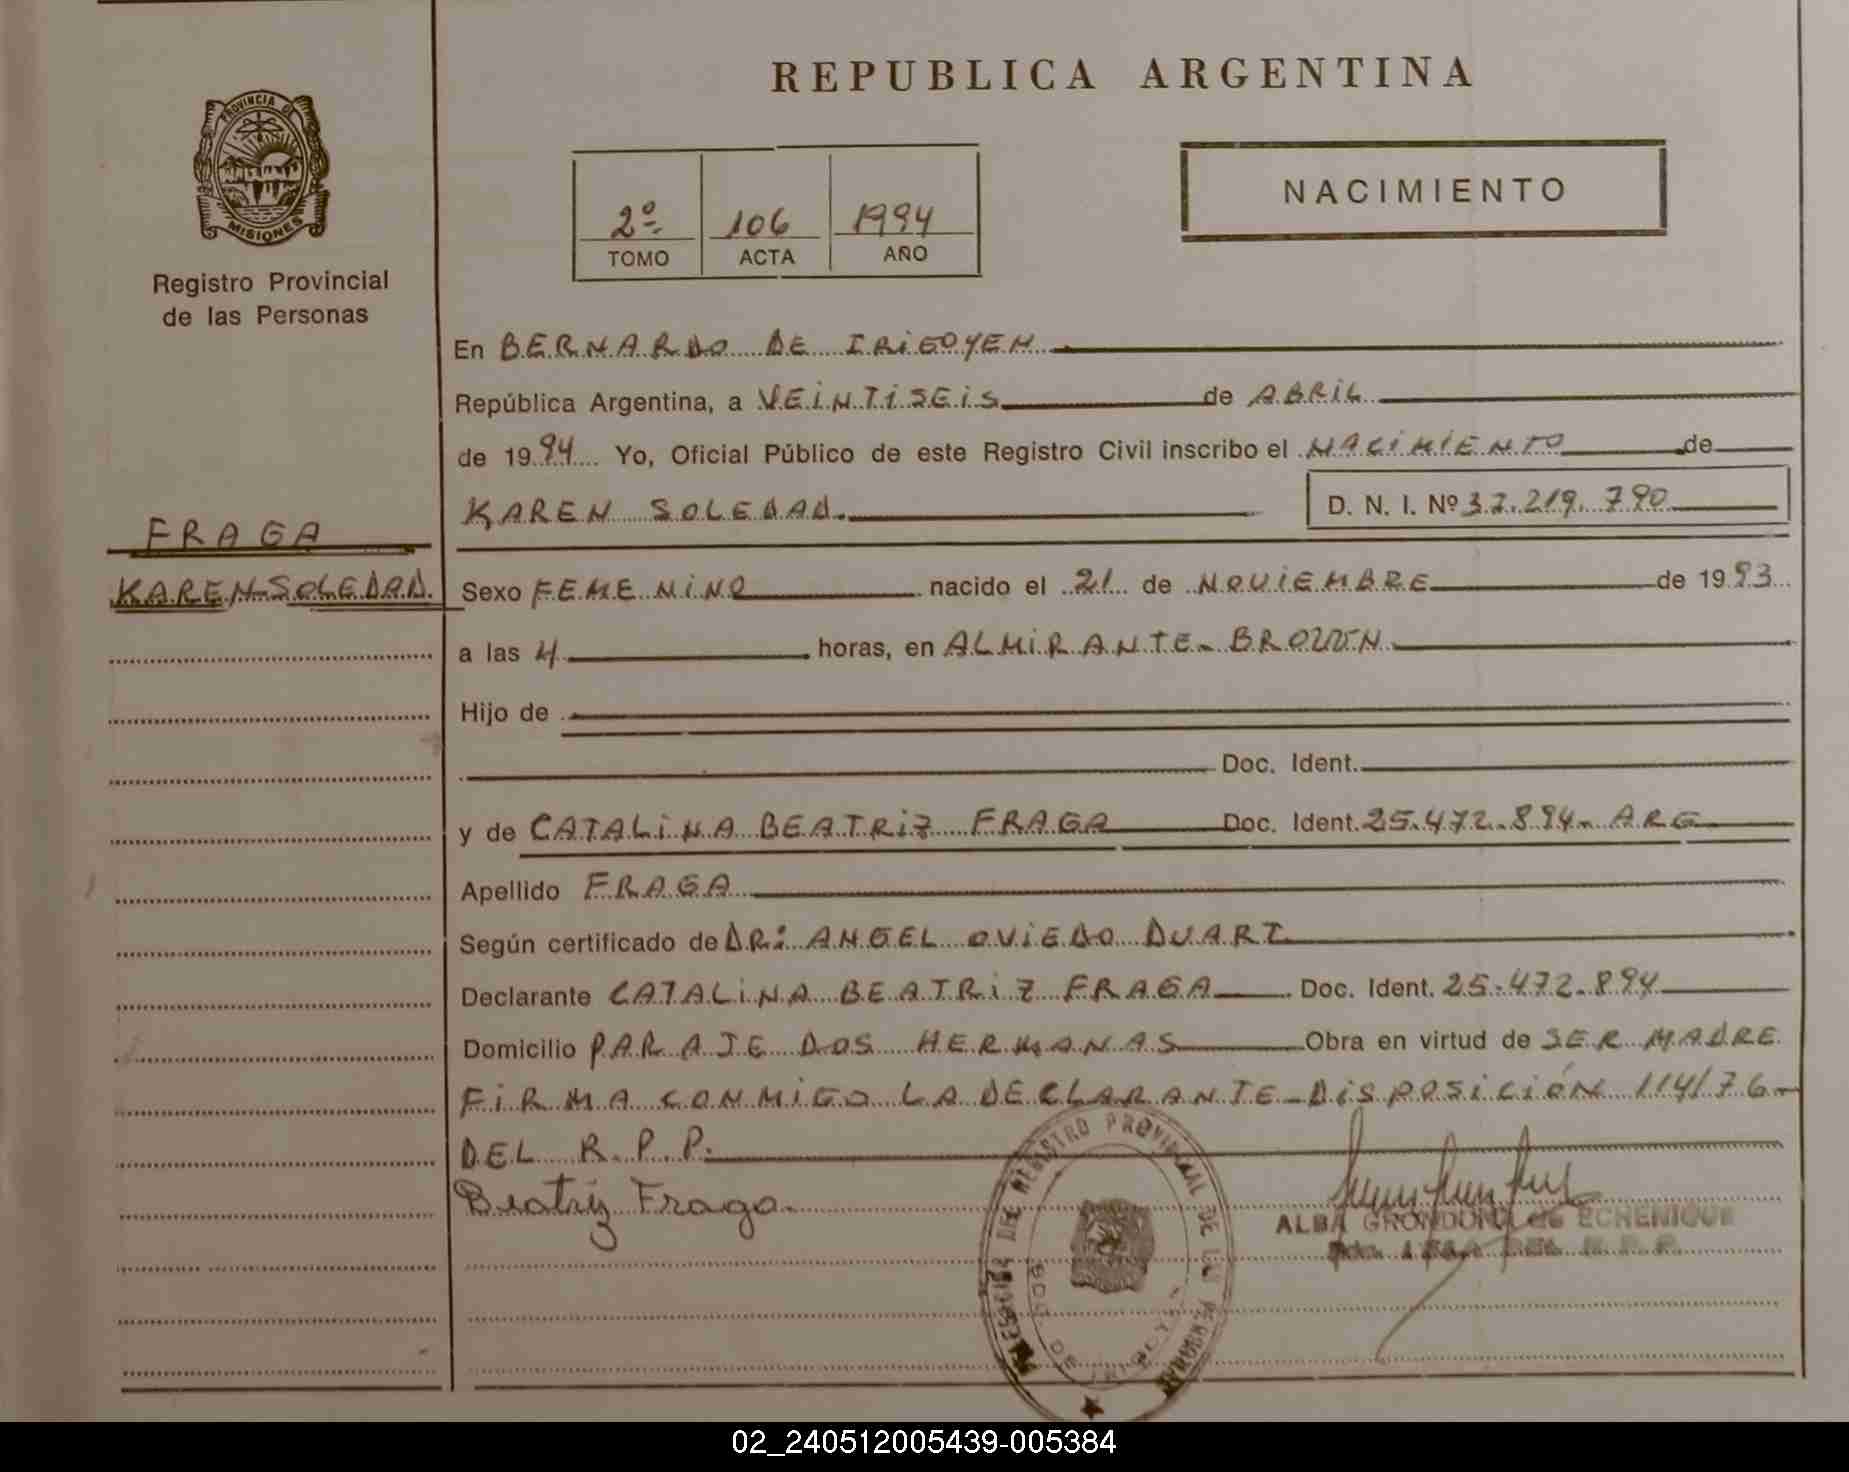 REPUBLICA ARGENTINA
PROVINCIA DE
MISIONES
Registro Provincial
de las Personas
2º 106 1994
TOMO ACTA AÑO
NACIMIENTO
En BERNARDO DE IRIGOYEN
República Argentina, a VEINTISEIS de ABRIL
de 1994 Yo, Oficial Público de este Registro Civil inscribo el NACIMIENTO de
KAREN SOLEDAD. D. N. I. Nº 37.219.790
FRAGA
KAREN SOLEDAD.
Sexo FEMENINO nacido el 21 de NOVIEMBRE de 1993
a las 4 horas, en ALMIRANTE BROWN
Hijo de
Doc. Ident.
y de CATALINA BEATRIZ FRAGA Doc. Ident. 25.472.894- ARG
Apellido FRAGA
Según certificado de DR: ANGEL OVIEDO DUART
Declarante CATALINA BEATRIZ FRAGA Doc. Ident. 25.472.894
Domicilio PARAJE DOS HERMANAS Obra en virtud de SER MADRE
FIRMA CONMIGO LA DECLARANTE-DISPOSICIÓN 114/76-
DEL R.P.P.
Beatriz Fraga.
DEL REGISTRO PROVINCIAL DE LAS PERSONAS
BDO DE IRIGOYEN
ALBA GRONDONA de ECHENIQUE
DEL R. P. P.
02_240512005439-005384